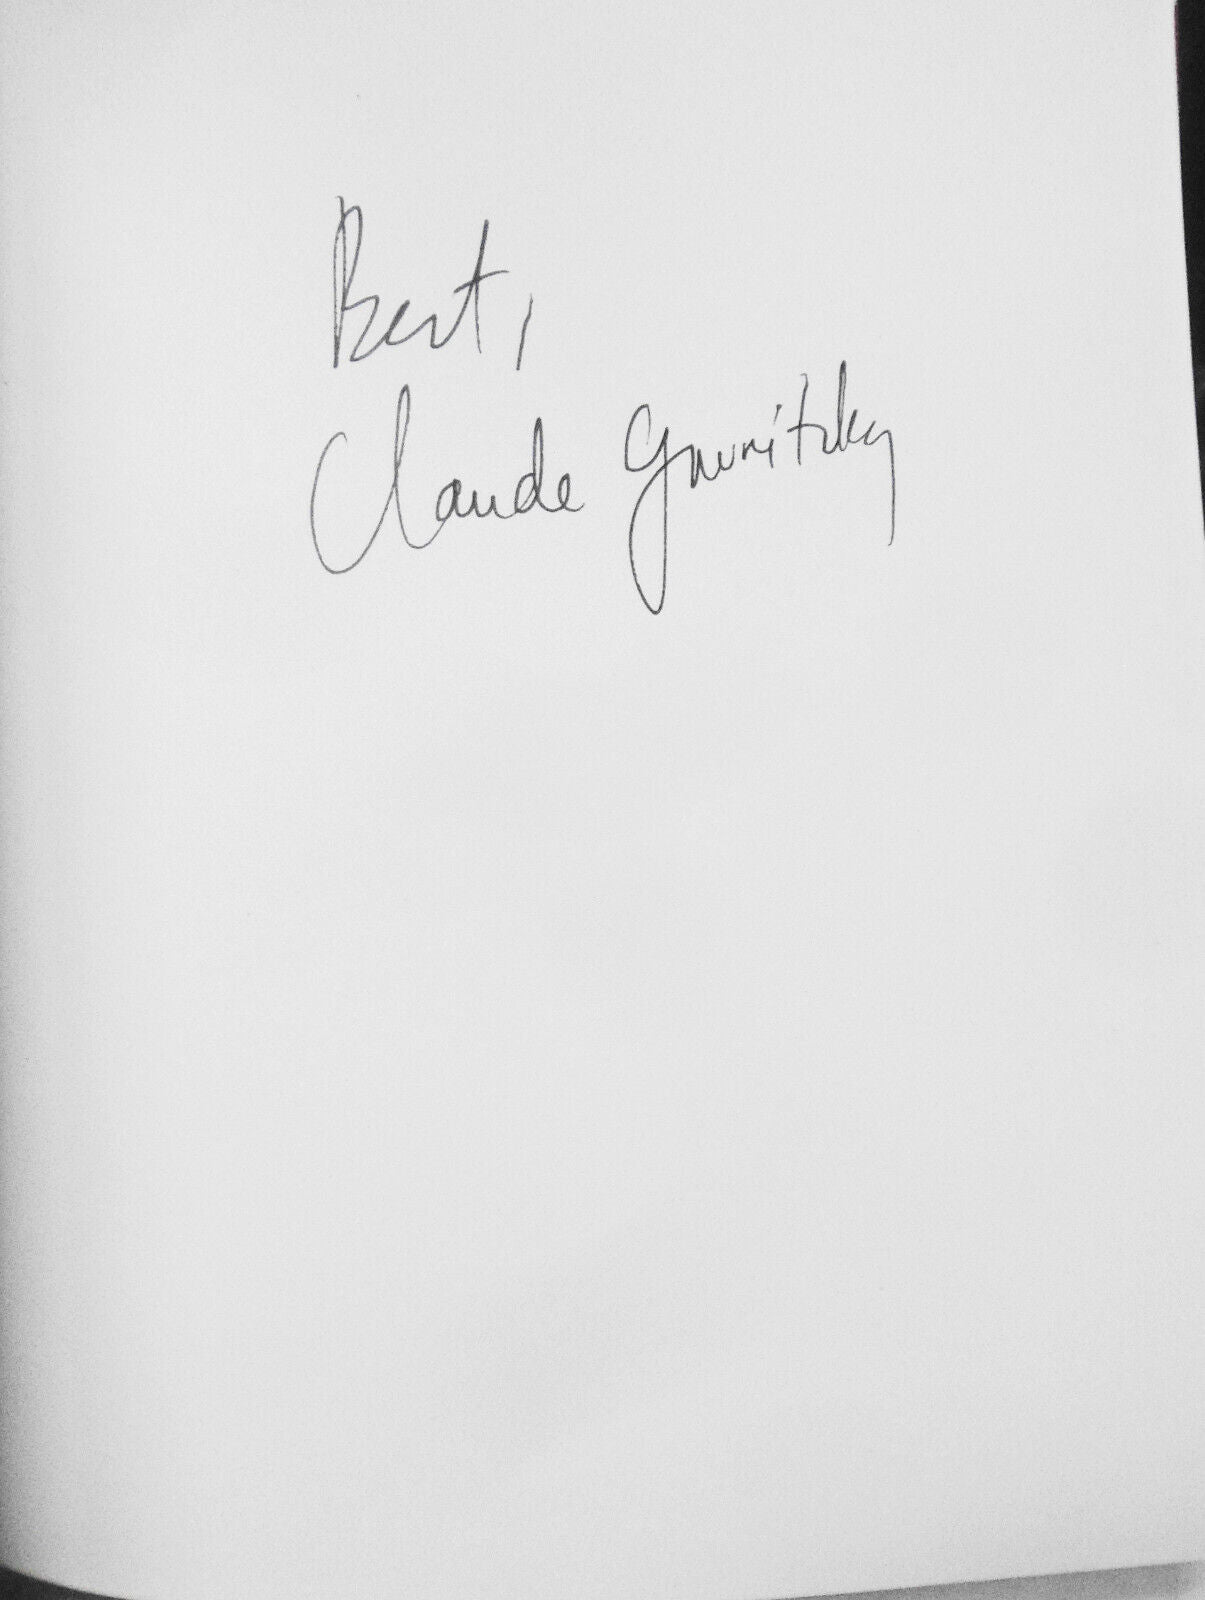 Best,
Claude Grunitzky